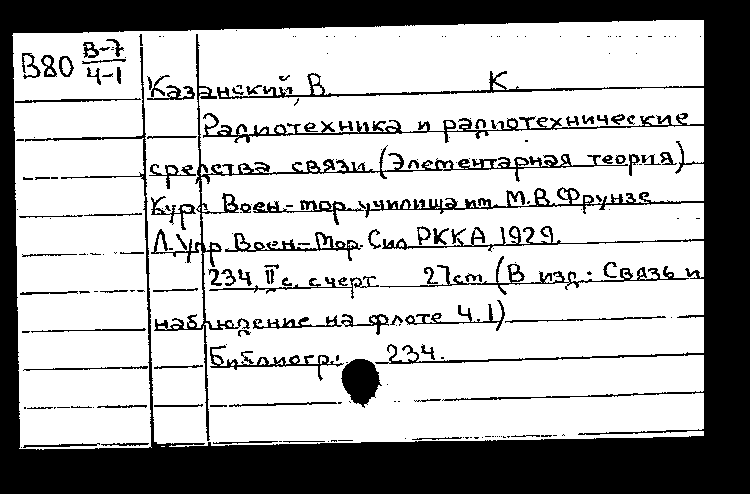 В80 В-7/Ч-1
Казанский, В. К.
Радиотехника и радиотехнические
средства связи. (Элементарная теория)
Курс Воен-мор. училища им. М.В.Фрунзе
Л. Упр. Воен-Мор. Сил РККА, 1929.
234, II с. с черт 27см. (В изд: Связь и
наблюдение на флоте Ч.1)
Библиогр: 234.